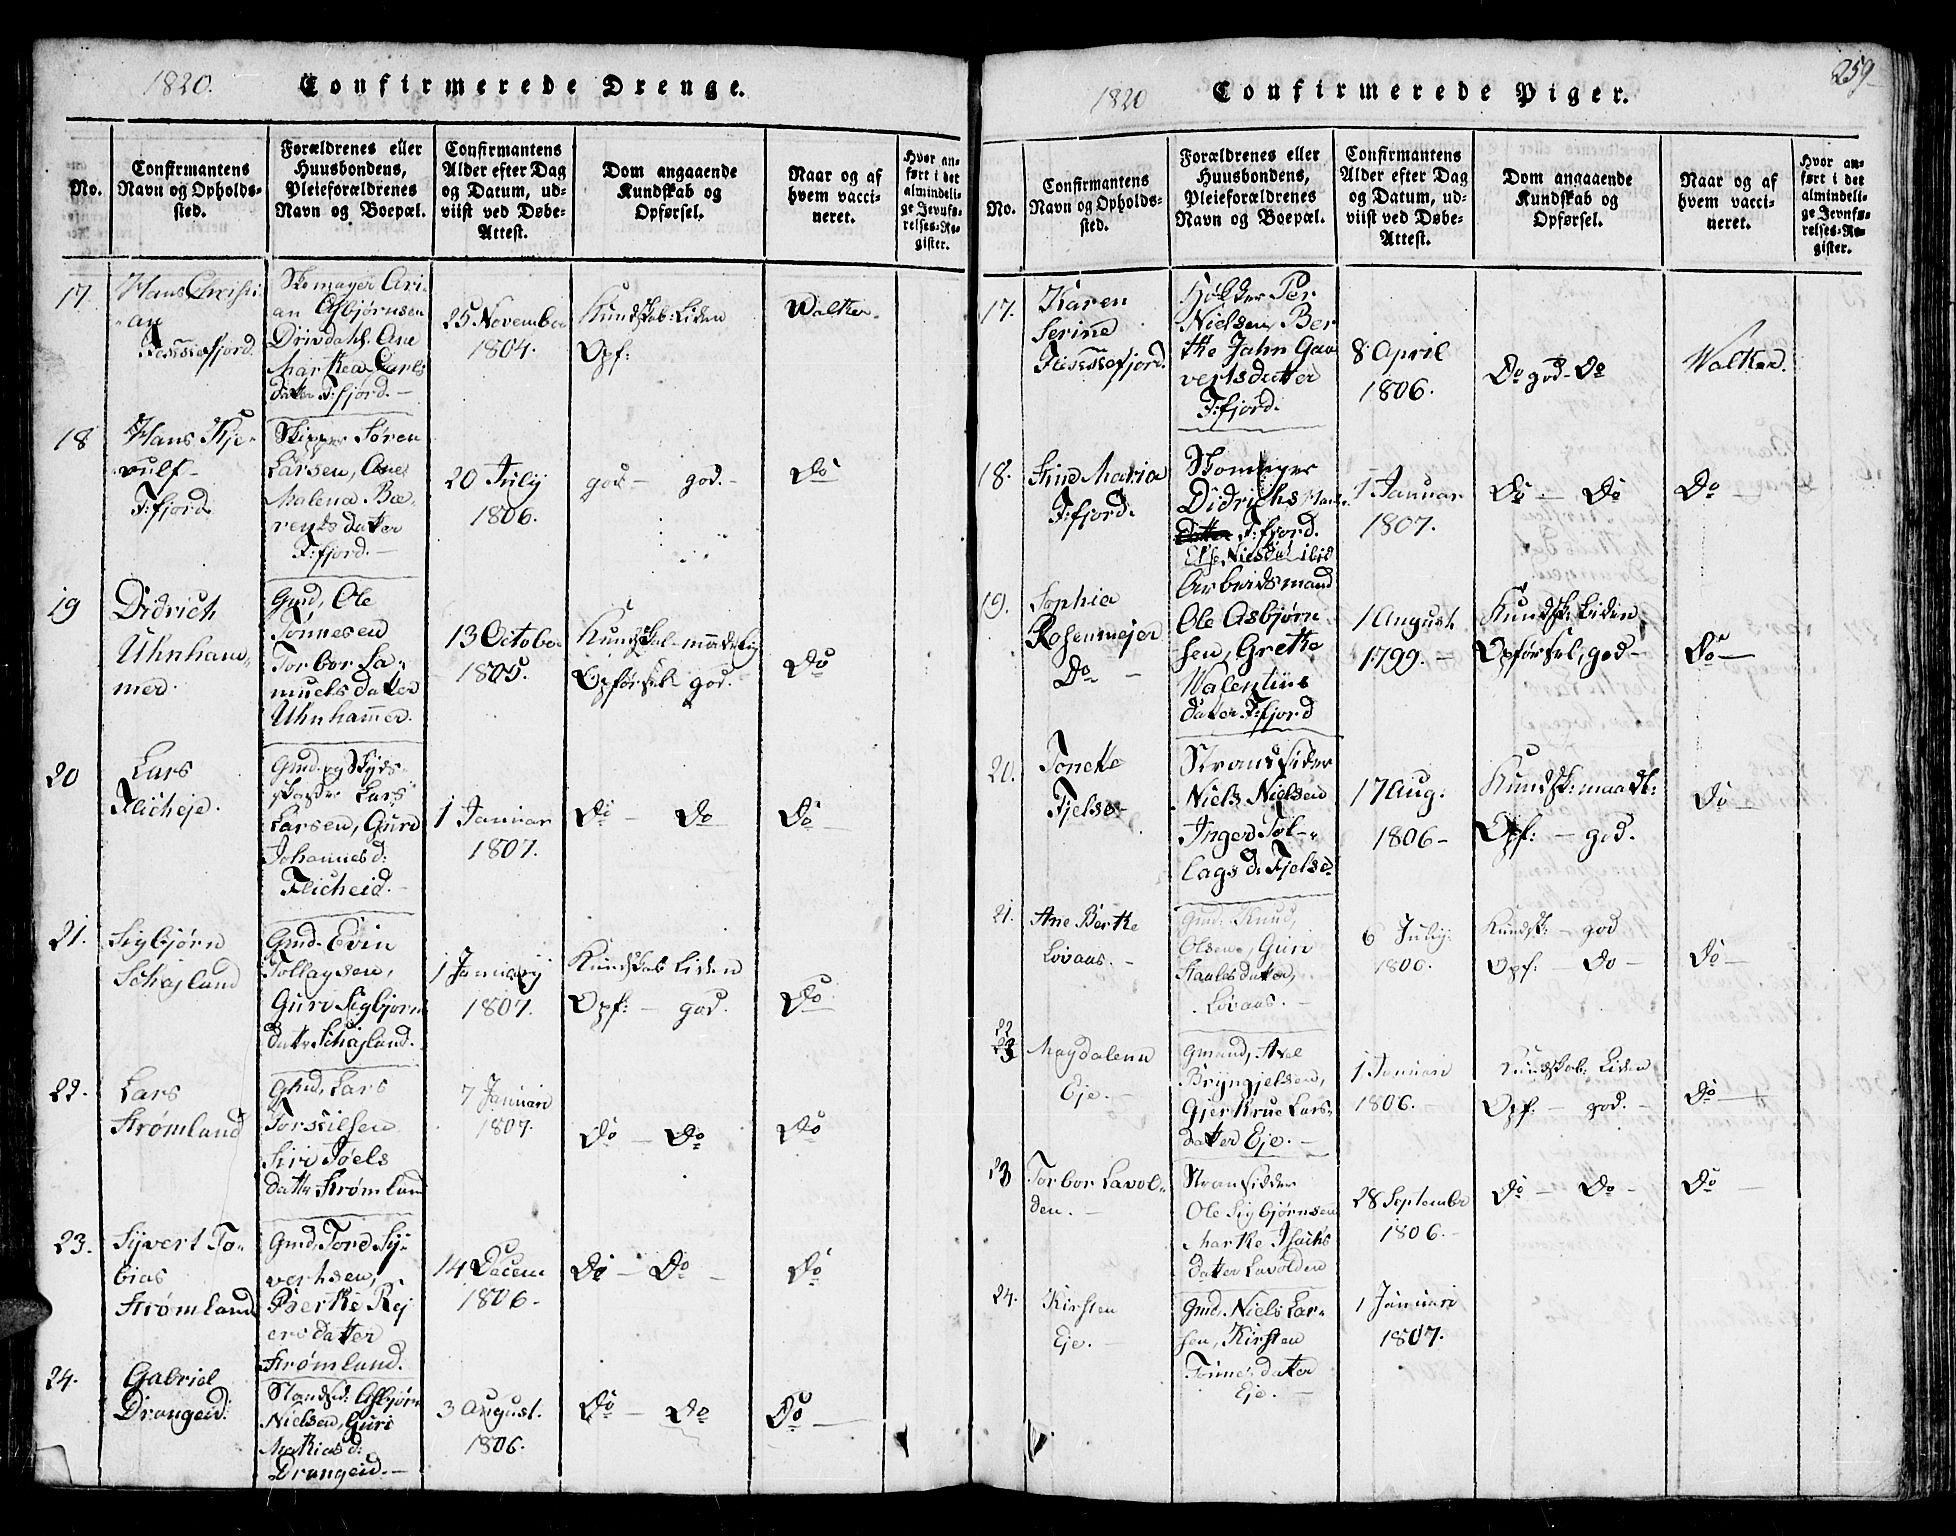 1820.
Confirmerede Drenge.
No.
Confirmantens
Navn og Opholds-
sted.
Forældrenes eller
Huusbondens,
Pleieforældrenes
Navn og Boepæl.
Confirmantens
Alder efter Dag
og Datum, ud-
viist ved Døbe-
Attest.
Dom angaaende
Kundskab og
Opførsel.
Naar og af
hvem vacci-
neret.
Hvor an-
ført i det
almindeli-
ge Jevnfø-
relses-Re-
gister.
17
Hans Christi-
an
Flessefjord.
Skomager Ari-
an Asbjørnsen
Drivdahl. Ane
Marthea Carls
datter F:fjord.-
25 November
1804.
Kundskab: Liden
Opf:
Walker.
18
Hans Kje-
rulf-
F:fjord.
Skipper Søren
Larsen, Ane
Malena Bæ-
rentsdatter
F:fjord.-
20 Julij
1806.
god - god.-
Do
19
Didrich
Uhnham-
mer.
Gmd, Ole
Tønnesen
Torbor Sa-
muelsdatter
Uhnhammer.
13 October
1805.
Kundskab- maadelig
Opførsel- god.-
Do
20
Lars
Flicheje.
Gmd. og Skyds-
skaffer Lars
Larsen, Guro
Johannesd:
Flicheid.-
1 Januar
1807.
Do - Do
Do-
21.
Sigbjørn
Schajland
Gmd. Evin
Tollagsen,
Guro Sigbjørns
datr Schajland.
1 Januarij
1807.
Kundskab Liden
Opf: - god.
Do
22.
Lars
Strømland
Gmd, Lars
Torkilsen
Siri Joels
dattr Strømland
7 Januari
1807.
Do - Do
Do
23.
Sijvert To-
bias
Strømland
Gmd, Tore Sij-
vertsen,
Berthe Rej
ersdatter
Strømland.
14 Decem
1806.
Do - Do -
Do
24.
Gabriel
Drangeid.
Strandsid: Asbjørn
Nielsen, Guri
Mathiasd:
Drangeid.-
3 August.
1806.
Do - Do
Do -
1820
Confirmerede Piger.
259
No.
Confirmantens
Navn og Opholds-
sted.
Forældrenes eller
Huusbondens,
Pleieforældrenes
Navn og Boepæl.
Confirmantens
Alder efter Dag
og Datum, ud-
viist ved Døbe-
Attest.
Dom angaaende
Kundskab og
Opførsel.
Naar og af
hvem vacci-
neret.
Hvor an-
ført i det
almindeli-
ge Jevnfø-
relses-Re-
gister.
17.
Karen
Serine
Flessefjord.
Per
Nielsen, Ber
the Jahn Gau
vertsdatter
F:fjord.
8 April
1806.
Do god - Do
Walker.
18.
Stine Maria
F:fjord.
Skomager
Didrichs
F:fjord.
Else Nielsdat ibid
1 Januar
1807.
Do - Do
Do-
19.
Sophia
Rosenmejer
Do -
Arbeidsmand
Ole Asbjørn
sen, Grethe
Valentins
datter. F:fjord
1 August
1799.-
Kundsk: Liden
Opførsel, god-
Do-
20.
Tonette
Fjelse-
Strandsider
Niels Nielsen
Inger Tol-
lagsd. Fjelse
17 Aug:
1806-
Kundsk: maadl:
Opf: - god.
Do -
21.
Ane Berthe
Løvaas.-
Gmd: Knud
Olsen, Guri
Staalesdatter,
Løvaas.-
6 Julij.
1806.
Kundsk: - god
Opf: - Do -
Do -
22
Magdalena
Eje.-
Gmand, Axel
Bryngjelsen,
Gjertrue Lars-
datter Eje.-
1 Januari
1806.
Kundskab: Liden
Opf: - god.-
Do -
23
Torbor Lavol-
den.-
Stransidder
Ole Sigbjørnsen
Marthe Isachs
datter Lavolden
28 Septembr
1806.-
Do - Do -
Do -
24.
Kirsten
Eje.-
Gmd, Niels Lar-
sen, Kirsten
Tønnesdatter
Eje.-
1 Januari
1807.